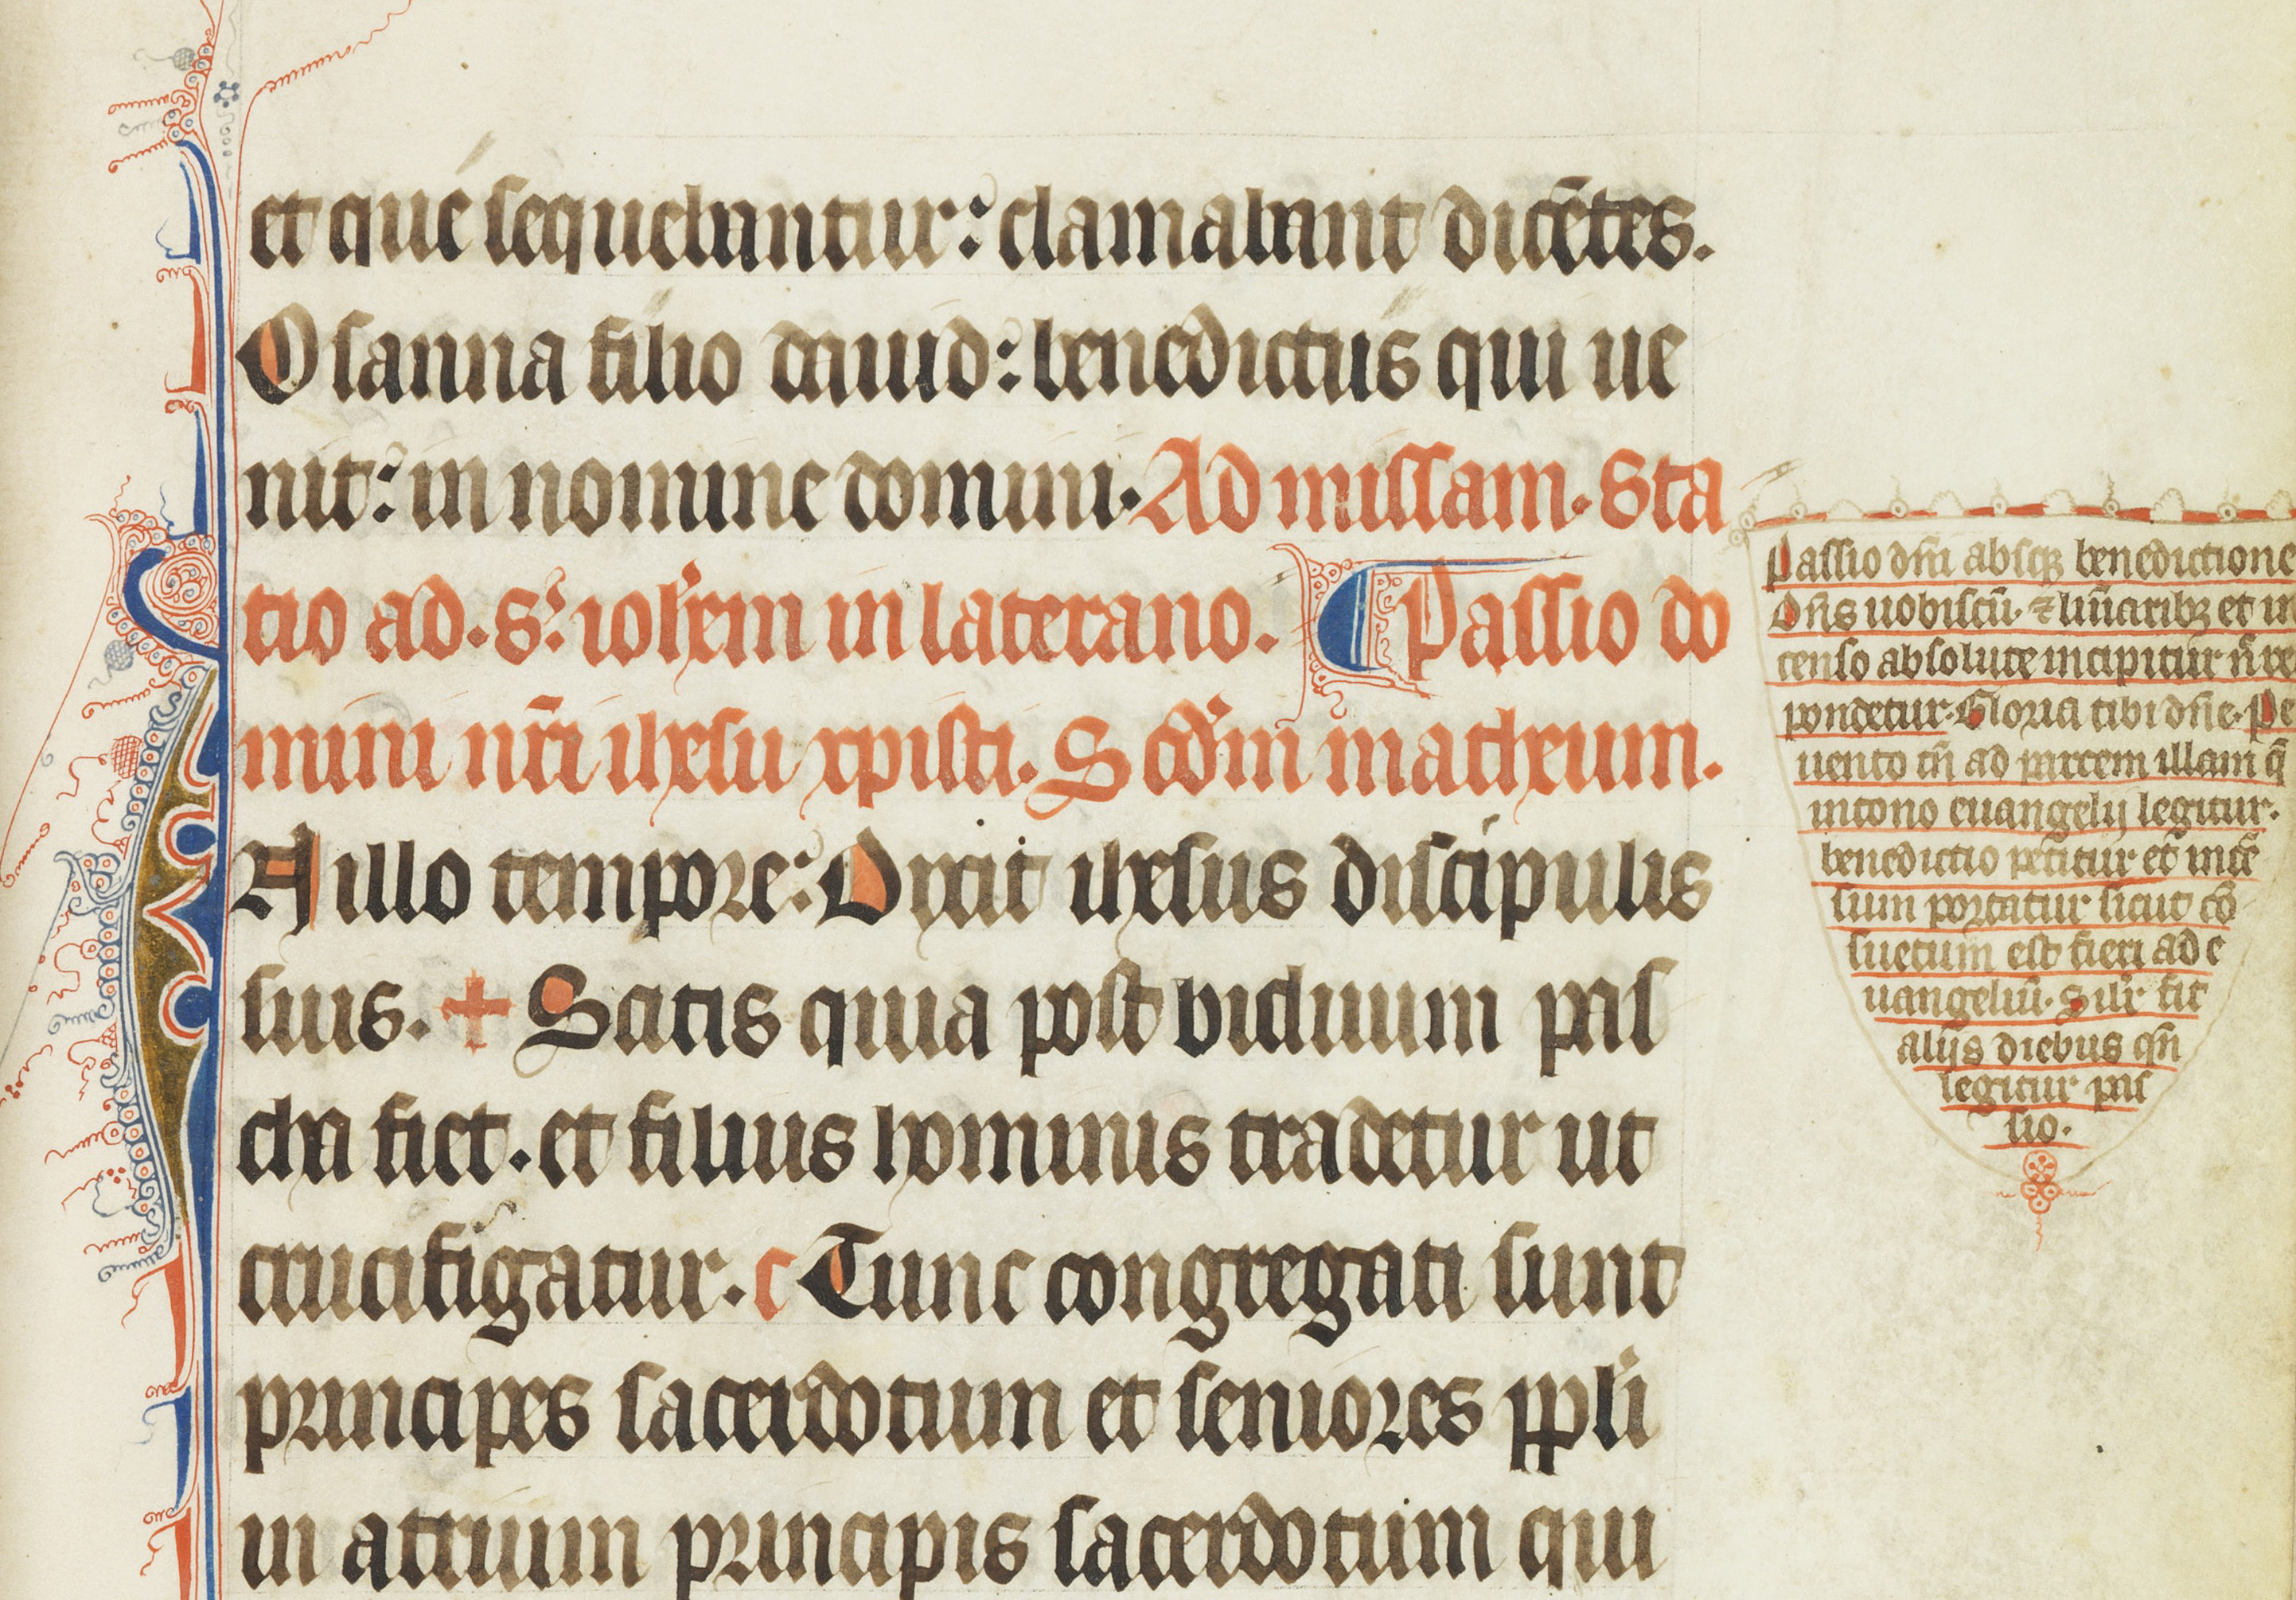 et que sequebantur: clamabant dicētes.
Osanna filio dauid: benedictus qui ue
nit: in nomine domini. Ad missam. Sta
tio ad. S. ioħem in laterano. Passio do
mini nr̄i ihesu xpisti. Scdm matheum.
In illo tempore: Dixit ihesus discipulis
suis. + Scitis quia post biduum pas
cha fiet. et filius hominis tradetur ut
crucifigatur. c Tunc congregati sunt
principes sacerdotum et seniores ppli
in atrium principis sacerdotum qui
Passio dn̄i absq; benedictione
Dn̄s uobiscū. et et in
censo absolute incipitur n̄ re
pondetur. Gloria tibi dn̄e. Per
uento tn̄ ad partem illam q̄
in tono euangelij legitur.
benedictio petitur et incē
sum portatur sicut cō
suetum est fieri ad e
uangeliū. Silr fit
alijs diebus qn̄
legitur pas
sio.